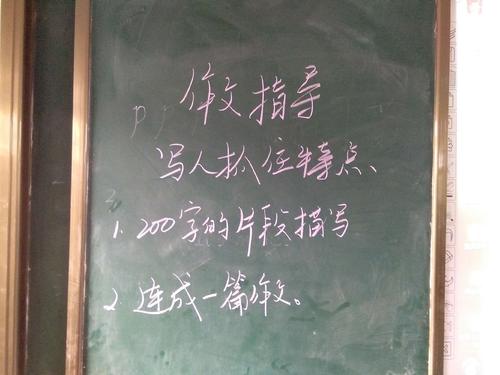 作文指导
写人抓住特点、
1. 200字的片段描写
2. 连成一篇作文。